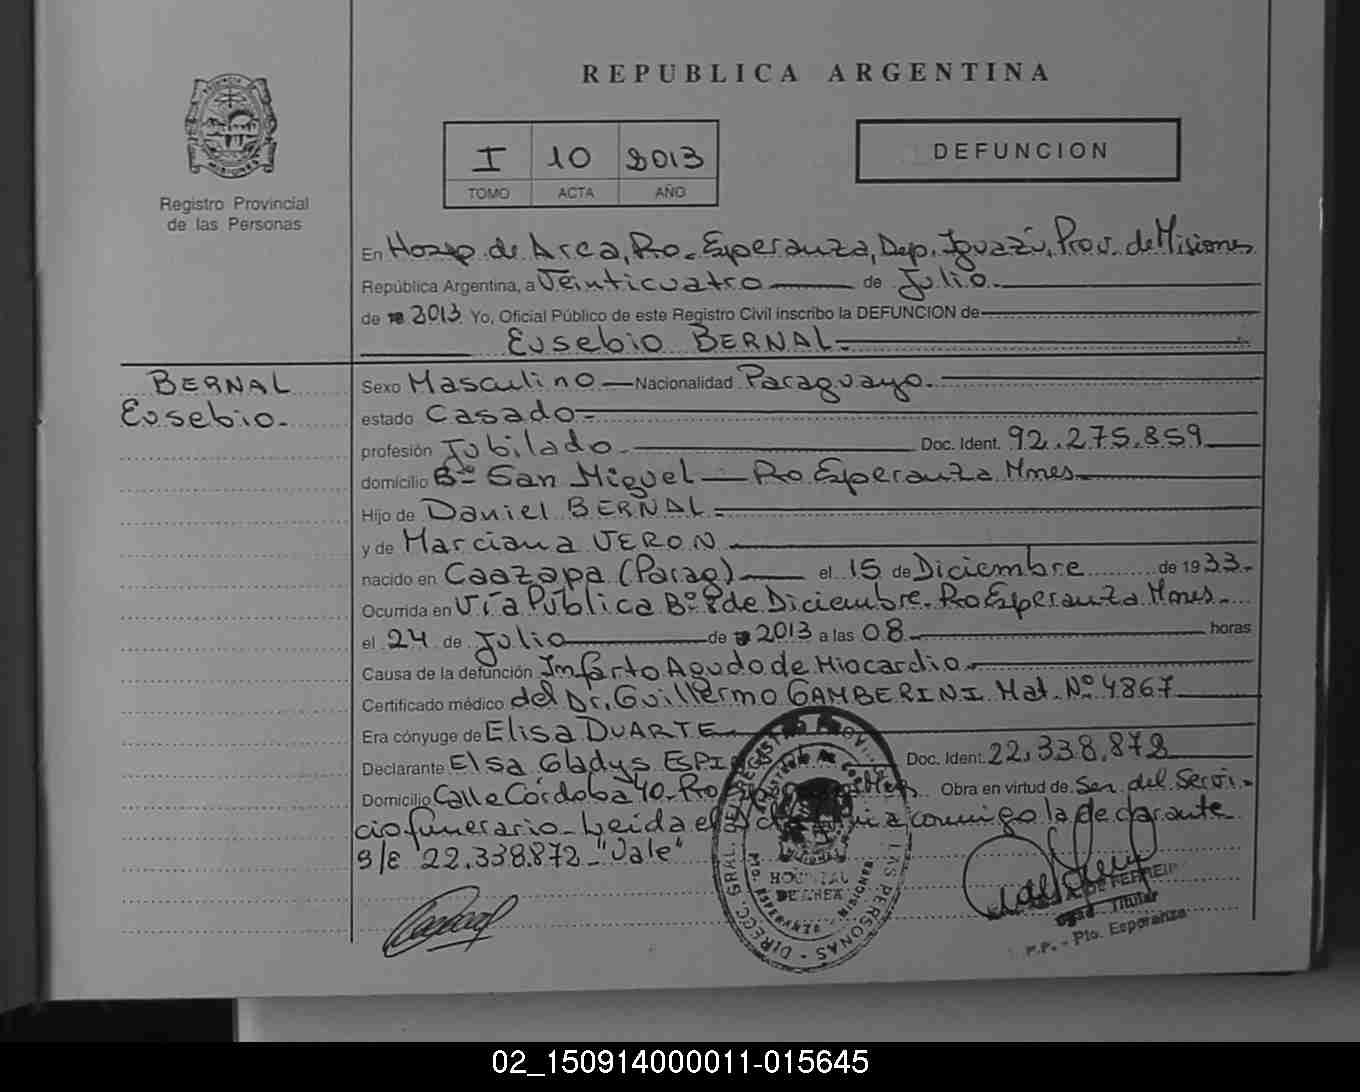 REPUBLICA ARGENTINA
I 10 2013
TOMO ACTA AÑO
DEFUNCION
Registro Provincial
de las Personas
En Hosp. de Area, Pto. Esperanza, Dep. Iguazú, Prov. de Misiones
República Argentina, a Veinticuatro de Julio.
de 2013 Yo, Oficial Público de este Registro Civil inscribo la DEFUNCION de
Eusebio BERNAL
BERNAL
Eusebio.
Sexo Masculino Nacionalidad Paraguayo.
estado Casado
profesión Jubilado Doc. Ident. 92.275.859
domicilio Bº San Miguel Pto Esperanza Mnes
Hijo de Daniel BERNAL
y de Marciana VERON
nacido en Caazapa (Parag) el 15 de Diciembre de 1933
Ocurrida en Vía Pública Bº 8 de Diciembre. Pto Esperanza Mnes
el 24 de Julio de 2013 a las 08 horas
Causa de la defunción Infarto Agudo de Miocardio
Certificado médico del Dr. Guillermo GAMBERINI Mat. Nº 4867
Era cónyuge de Elisa DUARTE
Declarante Elsa Gladys Doc. Ident. 22.338.872
Domicilio Calle Córdoba 40 Pto Obra en virtud de Ser del Servi-
cio funerario Leida el conmigo la declarante
S/E 22.338.872 "Vale"
HOSPITAL
DE AREA
DIRECC. GRAL. DEL REGISTRO PROV. DE LAS PERSONAS
PTO. ESPERANZA - MISIONES
DE FERREIR
Titular
Pto. Esperanza
02_150914000011-015645